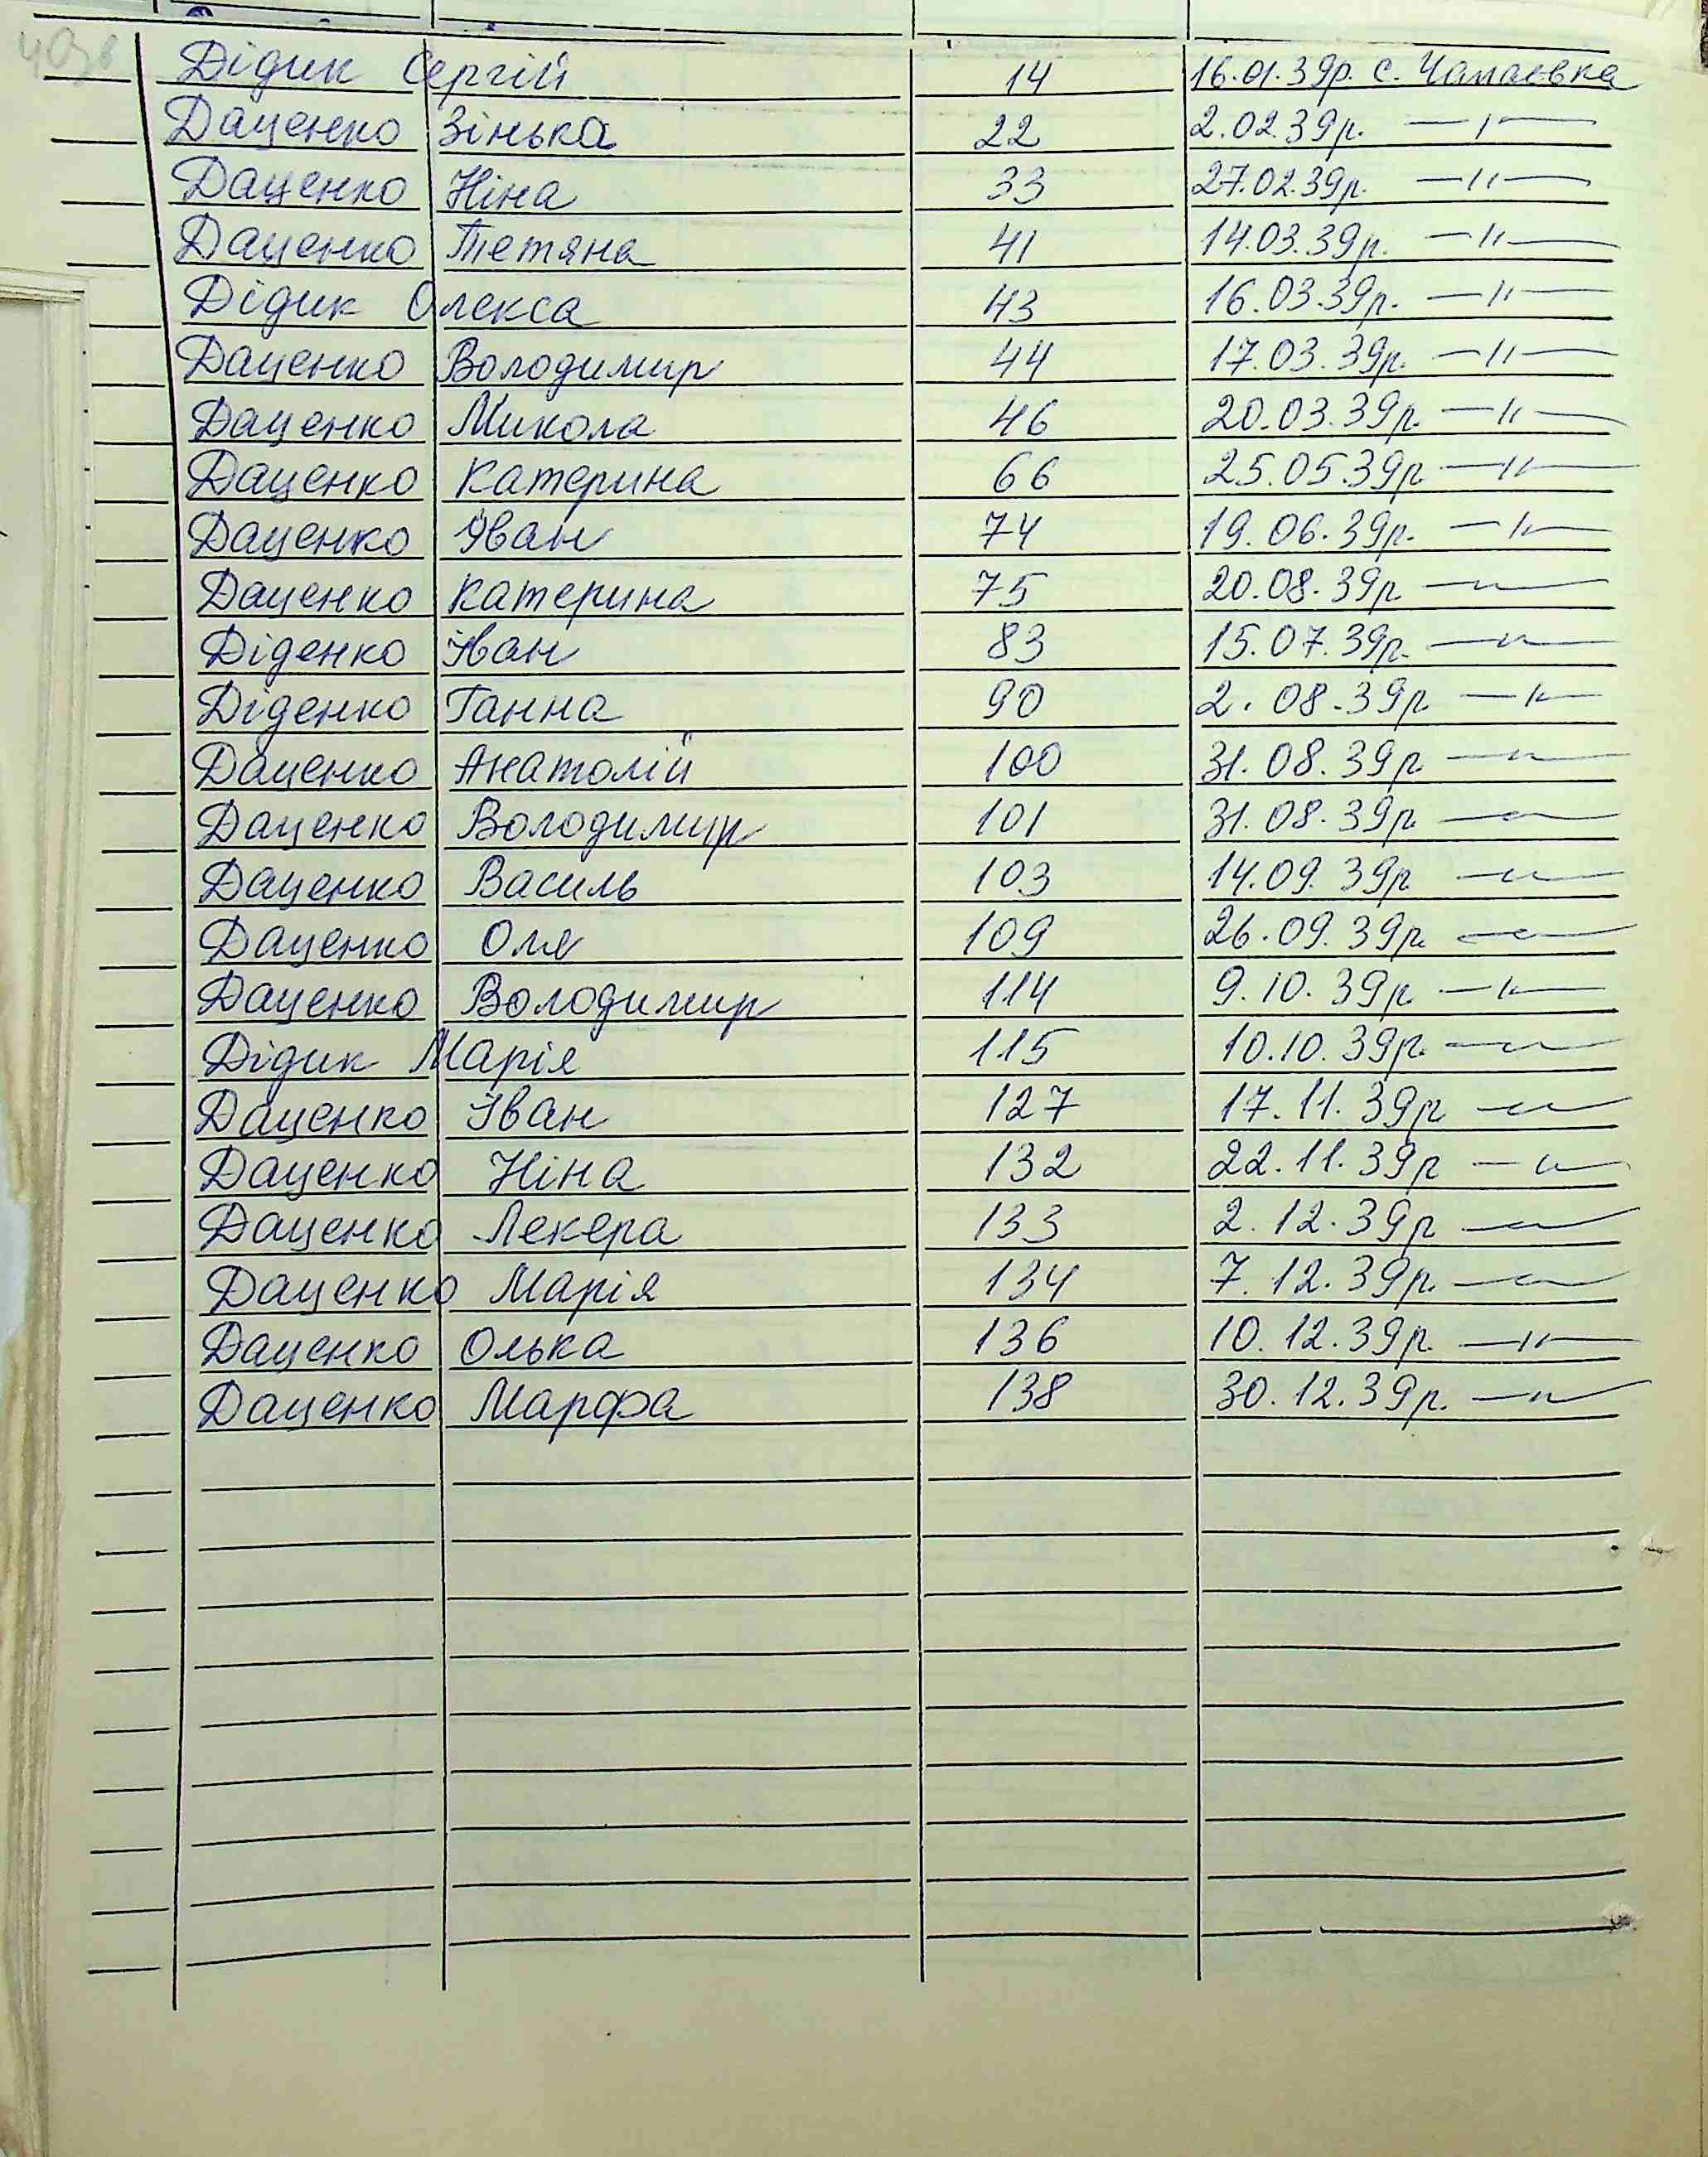 Дідик Сергій 14 16.01.39р. с. Чапаєвка
Даценко Зінька 22 2.02.39р. —"—
Даценко Ніна 33 27.02.39р. —"—
Даценко Тетяна 41 14.03.39р. —"—
Дідик Олекса 43 16.03.39р. —"—
Даценко Володимир 44 17.03.39р. —"—
Даценко Микола 46 20.03.39р. —"—
Даценко Катерина 66 25.05.39р. —"—
Даценко Іван 74 19.06.39р. —"—
Даценко Катерина 75 20.08.39р. —"—
Діденко Іван 83 15.07.39р. —"—
Діденко Ганна 90 2.08.39р. —"—
Даценко Анатолій 100 31.08.39р. —"—
Даценко Володимир 101 31.08.39р. —"—
Даценко Василь 103 14.09.39р —"—
Даценко Оля 109 26.09.39р. —"—
Даценко Володимир 114 9.10.39р. —"—
Дідик Марія 115 10.10.39р. —"—
Даценко Іван 127 17.11.39р —"—
Даценко Ніна 132 22.11.39р —"—
Даценко Лекера 133 2.12.39р —"—
Даценко Марія 134 7.12.39р. —"—
Даценко Олька 136 10.12.39р. —"—
Даценко Марфа 138 30.12.39р. —"—